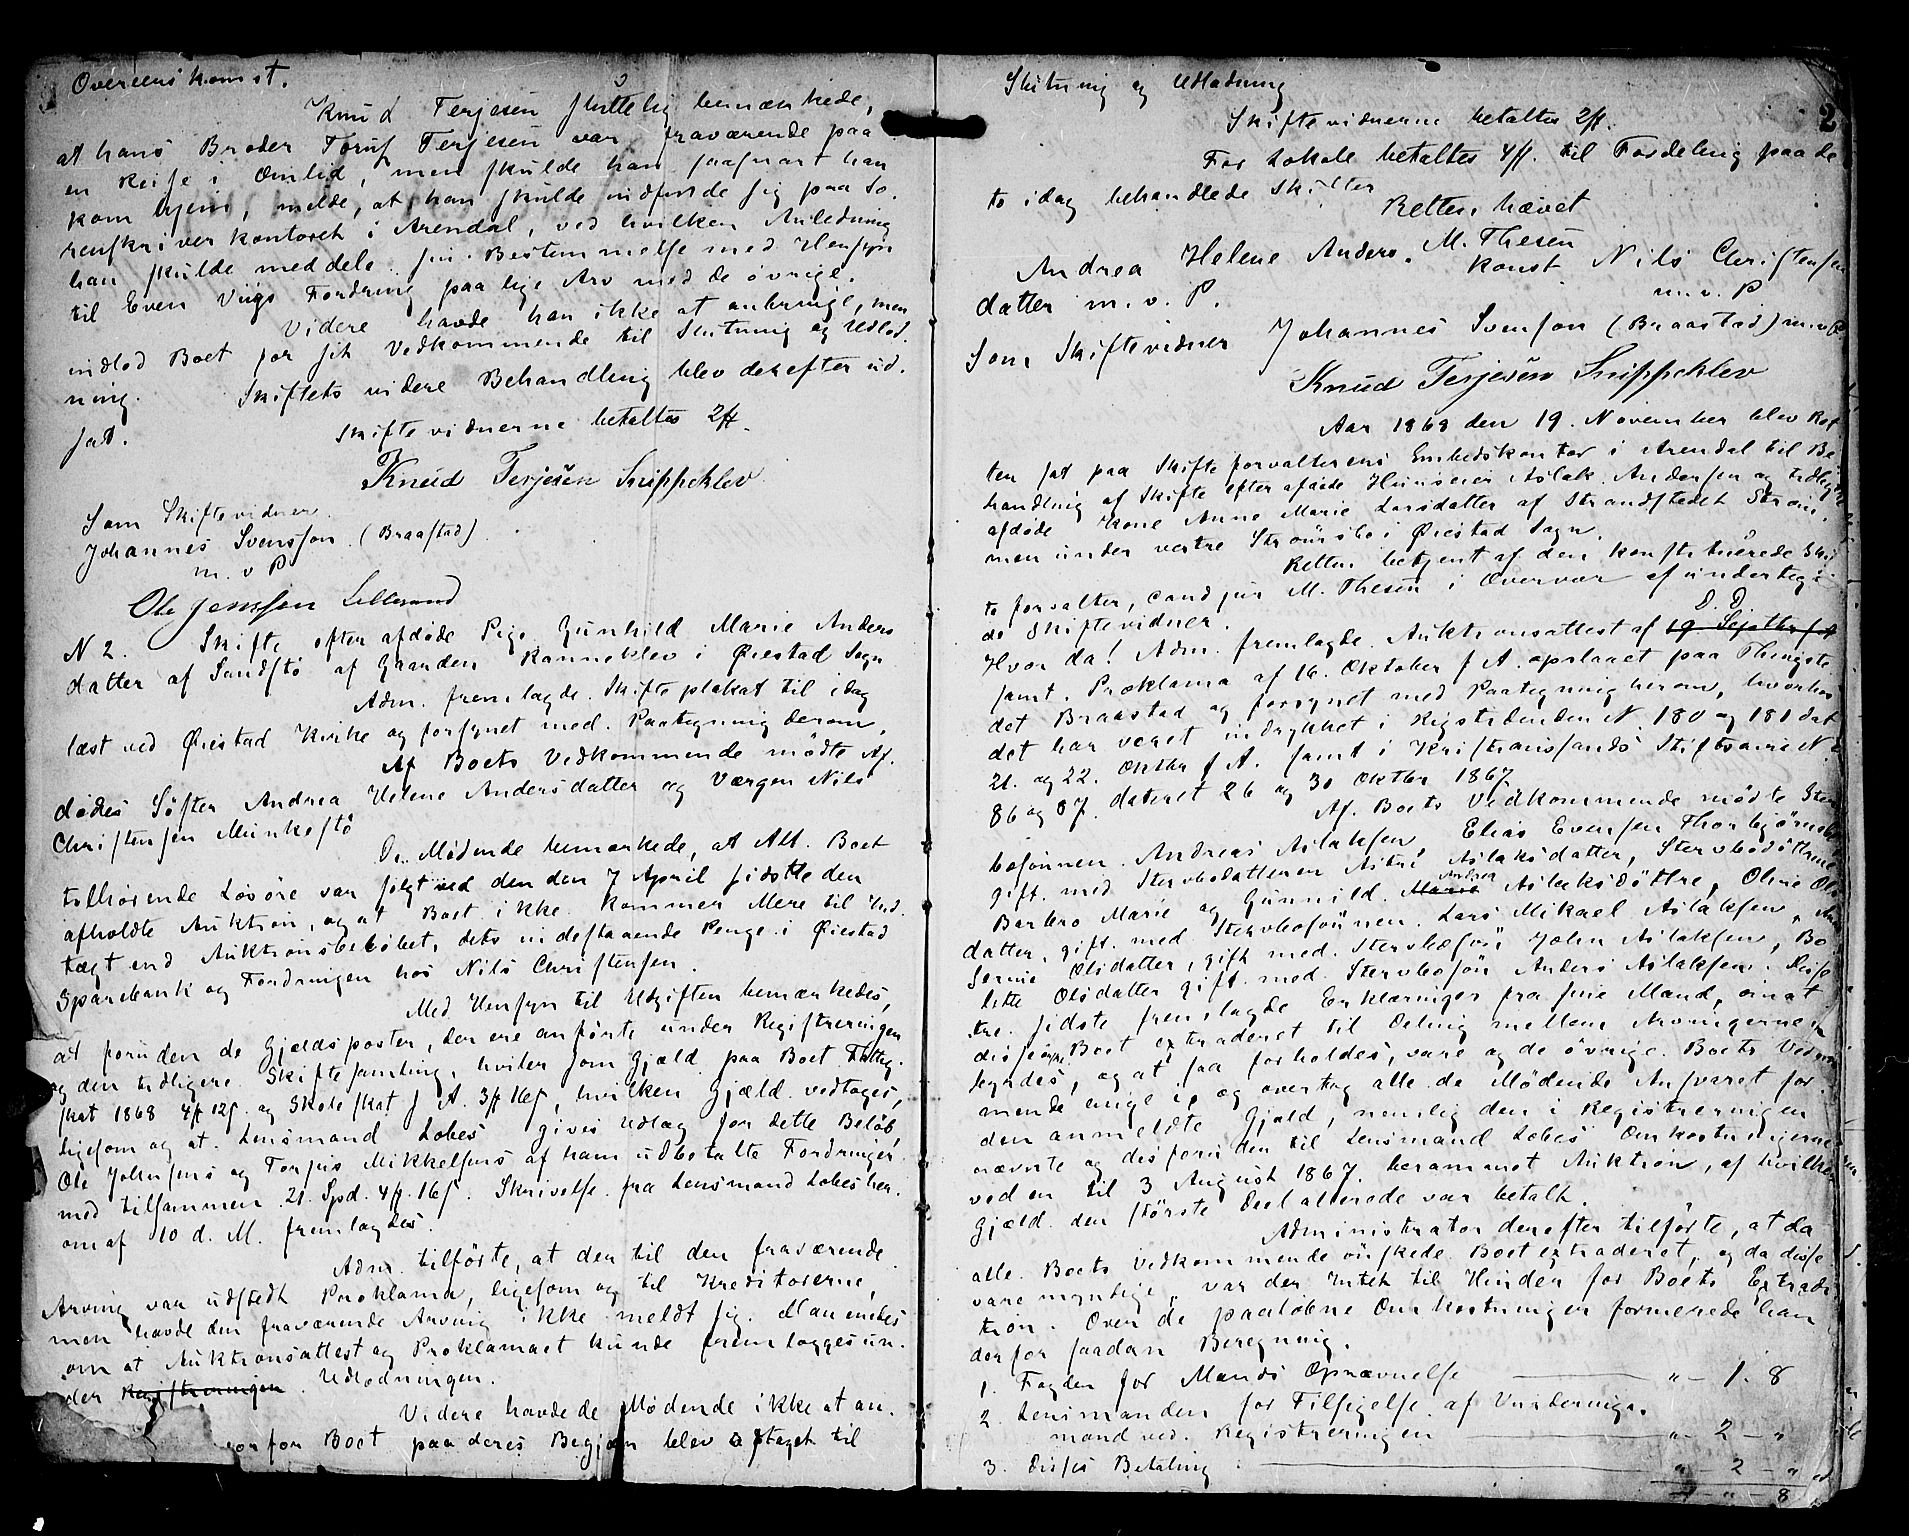 Overeenskomst.
Knud Terjesen sluttelig bemærkede,
at hans Broder Torus Terjesen var fraværende paa
en Reise i Omlid, men skulde han saasnart han
kom hjem, melde, at han skulde indfinde sig paa So-
renskriverkontoret i Arendal, ved hvilken Anledning
han skulde meddele sin Bestemmelse med Hensyn
til Even Viigs Fordring paa lige Arv med de øvrige.
Videre havde han ikke at anbringe, men
indlod Boet for sit Vedkommende til Slutning og Udlod-
ning.
Skiftets videre Behandling blev derefter ud-
sat.
Skiftevidnerne betaltes 2 ß.
Knud Terjesen Snippeklev
Som Skiftevidner
Johannes Svensson (Braastad)
m. v P
Ole Jenssen Lillesand
N 2. Skifte efter afdøde Pige Gunhild Marie Anders
datter af Sandstø af Gaarden Ranneklev i Øiestad Sogn
Adm. fremlagde Skifteplakat til idag
læst ved Øiestad Kirke og forsynet med Paategning derom,
Af Boets Vedkommende mødte Af-
dødes Søster Andrea Helene Andersdatter og Værgen Nils
Christensen Munkestø
De Mødende bemærkede, at Alt Boet
tilhørende Løsøre var solgt ved den den 7 April sidstleden
afholdte Auktion, og at Boet ikke kommer Mere til Ind-
tægt end Auktionsbeløbet, dets indestaaende Penge i Øiestad
Sparebank og Fordringen hos Nils Christensen.
Med Hensyn til Udgiften bemærkedes,
at foruden de Gjældsposter, der ere anførte under Registreringen
og den tidligere Skiftesamling, hviler som Gjæld paa Boet Fattig-
skat 1868 4 ß 12 s. og Skoleskat f A. 3 ß 16 s, hvilken Gjæld vedtages,
ligesom og at Lensmand Lobes gives Udlæg for dette Beløb,
Ole Johnsens og Torjus Mikkelsens af ham udbetalte Fordringer
med tilsammen 21 Spd. 4 ß. 16 s. Skrivelse fra Lensmand Lobes her-
om af 10 d. M. fremlagdes.
Adm. tilførte, at der til den fraværende
Arving var udstedt Proklama, ligesom og til Kreditorerne,
men havde den fraværende Arving ikke meldt sig. Man enedes
om at Auktionsattest og Proklamaet kunde fremlægges un-
der Registreringen Udlodningen.
Videre havde de Mødende ikke at an-
for Boet paa deres Begjær blev optaget til
Slutning og Udlodning
2
Skiftevidnerne betaltes 2 ß.
For Lokale betaltes 4 ß. til Fordeling paa de
to idag behandlede Skifter
Retten hævet
M. Thesen
konst
Andrea Helene Anders-
datter m. v. P.
Nils Christensen
m. v. P
Som Skiftevidner Johannes Svenson (Braastad) m. v P.
Knud Terjesen Snippeklev
Aar 1868 den 19. November blev Ret-
ten sat paa Skifteforvalterens Embedskontor i Arendal til Be-
handling af Skifte efter afdøde Huuseier Aslak Andersen og tidligere
afdøde Kone Anne Marie Larsdatter af Strandstedet Strøm-
men under vestre Strømsbo i Øiestad Sogn.
Retten betjent af den konstituerede Skif-
teforvalter, cand jur M. Thesen i Overvær af undertegne-
de Skiftevidner.
Hvor da! Adm. fremlagde Auktionsattest af 19 Septbr s A D. D.
samt. Proklama af 16. Oktober f A. opslaaet paa Thingste
det Braastad og forsynet med Paategning herom, hvorhos
det har været indrykket i Rigstidenden N. 180 og 181 dat
21. og 22. Oktbr f A. samt i Kristianssands Stiftsavis N.
86 og 87. dateret 26 og 30 Oktbr 1867
Af Boets Vedkommende mødte Sterv-
bosønnen Andreas Aslaksen, Elias Evensen Thorbjørnsbo
gift med Stervbodatteren Astri Aslaksdatter, Stervbodøttrene
Barbro Marie og Gunnild Marie Andrea Aslaksdøttre, Oline Ols
datter, gift med Stervbosønnen Lars Mikael Aslaksen,
Serine Olsdatter, gift med Stervbosøn John Aslaksen, Bo-
lette Olsdatter gift med Stervbosøn Anders Aslaksen. Disse
tre sidste fremlagde Erklæringer fra sine Mænd, om at
disse Boet extraderet til Deling mellem Arvingerne
, og at saa forholdes, vare og de øvrige Boets Vedkom-
mende enige i, og overtog alle de Mødende Ansvaret for
den anmeldte Gjæld, nemlig den i Registreringen
nævnte og desforuden til Lensmand Lobes Omkostningerne
ved en til 3 August 1867 berammet Auktion, af hvilken
Gjæld den største Deel allerede var betalt.
Administrator derefter tilførte, at da
alle Boets Vedkommende ønskede Boet extraderet, og da disse
vare myndige, var der Intet til Hinder for Boets Extradi-
tion. Over de paaløbne Omkostninger formerede han
derfor saadan Beregning.
1. Fogden for Mænds Opnævnelse " - 1. 8
2. Lensmanden for Tilsigelse af Vurderings-
mænd ved Registreringen " - 2 - "
3. Disses Betaling " - 2 - "
" 8